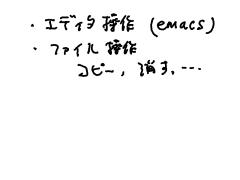 ・エディタ操作 (emacs)
・ファイル操作
コピー, 消す, …